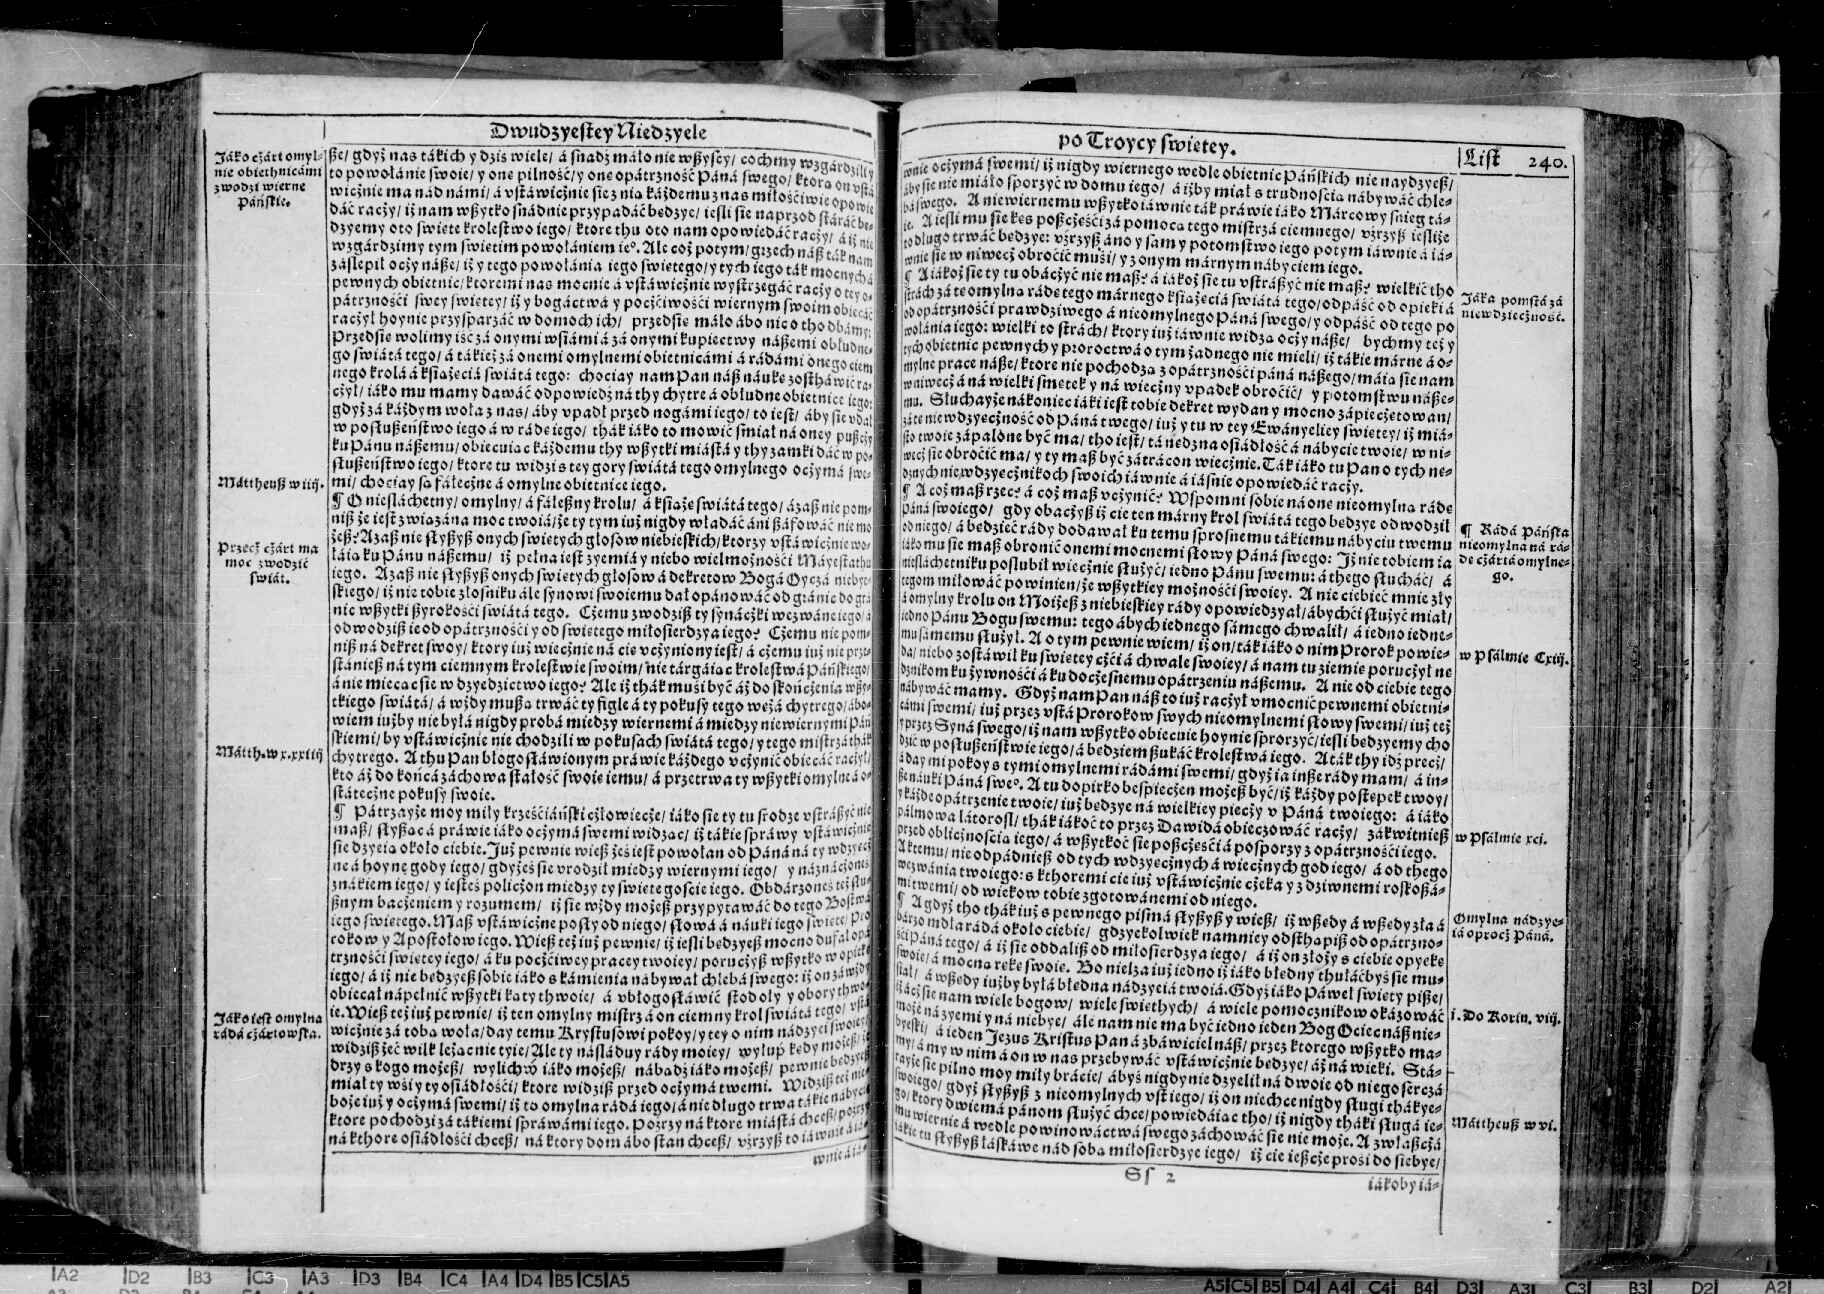 Dwudzyestey Niedzyele
Jáko cżárt omyl-
nie obiethnicámi
zwodzi wierne
Páńskie.
ße/ gdyż nas tákich y dziś wiele/ á snadź máło nie wßyscy/ cochmy wzgárdzili y
to powołánie swoie/ y one pilność/ y one opátrzność Páná swego/ ktora on vstá
wicżnie ma nád námi/ á vstáwicżnie sie z nią káżdemu z nas miłośćiwie opowie
dáć racży/ iż nam wßytko snádnie przypádáć będzye/ iesli sie naprzod stáráć bę-
dzyemy oto swięte krolestwo iego/ ktore thu oto nam opowiedáć racży/ á iż nie
wzgárdzimy tym swiętim powołániem ie°. Ale coż potym/ grzech náß ták nam
záslepił ocży náße/ iż y tego powołánia iego swiętego/ y tych iego ták mocnych á
pewnych obietnic/ ktoremi nas mocnie á vstáwicżnie wystrzegáć racży o tey o-
pátrznośći swey swiętey/ iż y bogáctwá y pocżćiwośći wiernym swoim obiecáć
racżył hoynie przysparzáć w domoch ich/ przedsię máło ábo nic o tho dbamy:
Przedsię wolimy iść zá onymi wsiámi á zá onymi kupiectwy nászemi obłudne-
go swiátá tego/ á tákież zá onemi omylnemi obietnicámi á rádámi onego ciem
nego krolá á książęciá swiátá tego: chociay nam Pan náß náukę zostháwić ra-
cżył/ iáko mu mamy dawáć odpowiedź ná thy chytre á obłudne obietnice iego:
gdyż zá káżdym woła z nas/ áby vpadł przed nogámi iego/ to iest/ áby sie vdał
w posłußeństwo iego á w rádę iego/ thák iáko to mowić smiał ná oney pußcży
ku Pánu nászemu/ obiecuiąc káżdemu thy wßytki miástá y thy zamki dáć w po-
słußeństwo iego/ ktore tu widzis z tey gory swiátá tego omylnego ocżymá swe-
Mattheuß w iiij.
mi/ chociay są fáłecżne á omylne obietnice iego.
¶ O nieslachetny/ omylny/ á fáłeßny krolu/ á książe swiátá tego/ ázaß nie pom-
niß że iest związána moc twoiá/ że ty tym iuż nigdy władáć áni ßáfowáć nie mo
żeß? Azaß nie słyßyß onych swiętych głosow niebieskich/ ktorzy vstáwicżnie wo-
Przecż cżárt ma
moc zwodzić
świát.
łáią ku Pánu nászemu/ iż pełna iest zyemiá y niebo wielmożnośći Máyestathu
iego. Azaß nie słyßyß onych swiętych głosow á dekretow Bogá Oycá niebye-
skiego/ iż nie tobie złosniku ále synowi swoiemu dał opánowáć od gránic do grá
nic wßytki ßyrokośći swiátá tego. Cżemu zwodziß ty synacżki wezwáne iego/ á
odwodziß ie od opátrznośći y od swiętego miłosierdzya iego? Cżemu nie pom-
niß ná dekret swoy/ ktory iuż wiecżnie ná cie vcżyniony iest/ á cżemu iuż nie prze-
stánieß ná tym ciemnym krolestwie swoim/ nie tárgáiąc krolestwá Páńskiego/
á nie mięcąc sie w dzyedzictwo iego? Ale iż thák musi być áż do skońcżenia wßy-
tkiego swiátá/ á wżdy mußą trwáć ty figle á ty pokusy tego wężá chytrego/ ábo-
wiem iużby nie byłá nigdy probá miedzy wiernemi á miedzy niewiernymi Páń
skiemi/ by vstáwicżnie nie chodzili w pokusach swiátá tego/ y tego mistrzá thák
Mátth. w x. xxiiij
chytrego. A thu Pan błogosłáwionym práwie káżdego vcżynić obiecáć racżył/
kto áż do końcá záchowa stáłość swoię iemu/ á przetrwa ty wßytki omylne á o-
státecżne pokusy swoie.
¶ Pátrzayże moy miły krześćiáński cżłowiecże/ iáko sie ty tu srodze vstráßyć nie
maß/ słyßąc á práwie iáko ocżymá swemi widząc/ iż tákie spráwy vstáwicżnie
sie dzyeią około ciebie. Już pewnie wieß żeś iest powołan od Páná ná ty wdzyecż
ne á hoyne gody iego/ gdyżeś sie vrodził miedzy wiernymi iego/ y náznácżoneś
známieniem iego/ y iesteś policżon miedzy ty swięte goście iego. Obdárzoneś też słu-
ßnym bacżeniem y rozumem/ iż sie wżdy możeß przypytawáć do tego Bostwá
iego swiętego. Maß vstáwicżne posty od niego/ słowá á náuki iego swięte/ Pro
rokow y Apostołow iego. Wieß też iuż pewnie/ iż iesli będzyeß mocno dufał opá
trznośći swiętey iego/ á ku pocżćiwcy pracey twoiey/ porucżyß wßytko w opiekę
iego/ á iż nie będzyeß sobie iáko s kámieniá nábywał chlebá swego: iż on záwżdy
obiecał nápełnić wßytki kąty thwoie/ á vbłogosłáwić stodoły y obory thwo-
Jáko iest omylna
rádá cżártowska.
ie. Wieß też iuż pewnie/ iż ten omylny mistrz á on ciemny krol swiátá tego/ vstá
wicżnie zá tobą woła/ day temu Krystusowi pokoy/ y tey o nim nádzyei swoiey/
widziß żeć wilk leżąc nie tyie/ Ale ty násláduy rády moiey/ wyłup kędy możeß/ ze
drzy s kogo możeß/ wylichw iáko możeß/ nábądź iáko możeß/ pewnie będzyeß
miał ty wśi y ty osiádłośći/ ktore widziß przed ocżymá twemi. Widziß też nie-
boże iuż y ocżymá swemi/ iż to omylna rádá iego/ á nie długo trwa tákie nábycie
ktore pochodzi zá tákiemi spráwámi iego. Poźrzy ná ktore miástá chceß/ poźrzy
ná kthore osiádłośći chceß/ ná ktory dom ábo stan chceß/ vźrzyß to iáwnie á iá-
wnie á iá-
po Troycy swiętey.
List 240.
wnie ocżymá swemi/ iż nigdy wiernego wedle obietnic Páńskich nie naydzyeß/
áby sie nie miáło sporzyć w domu iego/ á iżby miał s trudnośćią nábywáć chle-
bá swego. A niewiernemu wßytko iáwnie ták práwie iáko Márcowy śnieg tá-
ie. A iesli mu sie kęs poßcżęśći zá pomocą tego mistrzá ciemnego/ vźrzyß iesliże
to długo trwáć będzye: vźrzyß áno y sam y potomstwo iego potym iáwnie á iá-
wnie sie w niwecż obroćić muśi/ y z onym márnym nábyciem iego.
¶ A iákoż sie ty tu obacżyć nie maß? á iákoż sie tu vstráßyć nie maß? wielkić tho
Jáka pomstá zá
niewdziecżność.
strách zá tę omylną rádę tego márnego książęciá swiátá tego/ odpáść od opieki á
od opátrznośći prawdziwego á nieomylnego Páná swego/ y odpáść od tego po
wołánia iego: wielki to strách/ ktory iuż iáwnie widzą ocży náße/ bychmy też y
tych obietnic pewnych y proroctwá o tym żadnego nie mieli/ iż tákie márne á o-
mylne prace náße/ ktore nie pochodzą z opátrznośći páná nászego/ máią sie nam
wniwecż á ná wielki smętek y ná wiecżny vpadek obroćić/ y potomstwu náße-
mu. Słuchayże nákoniec iáki iest tobie dekret wydan y mocno zápiecżętowan/
zá tę niewdzyecżność od Páná twego/ iuż y tu w tey Ewányeliey swiętey/ iż miá-
sto twoie zápalone być ma/ tho iest/ tá nędzna osiádłość á nábycie twoie/ w ni-
wecż sie obroćić ma/ y ty maß być zátrácon wiecżnie. Ták iáko tu Pan o tych ne-
dznych niewdzyecżnikoch swoich iáwnie á iásnie opowiedáć racży.
¶ A coż maß rzec? á coż maß vcżynić? Wspomni sobie ná onę nieomylną rádę
¶ Rádá Páńska
nieomylna ná rá-
dę cżártá omylne-
go.
Páná swoiego/ gdy obacżyß iż cie ten márny krol swiátá tego będzye odwodził
od niego/ á będzieć rády dodawał ku temu sprosnemu tákiemu nábyciu twemu
iáko mu sie maß obronić onemi mocnemi słowy Páná swego: Iż nie tobiem ia
nieslachetniku poslubił wiecżnie służyć/ iedno Pánu swemu: á thego słucháć/ á
tegom miłowáć powinien/ że wßytkiey możnośći swoiey. A nie ciebieć mnie zły
á omylny krolu on Moiżeß z niebieskiey rády opowiedzyał/ ábychći służyć miał/
iedno Pánu Bogu swemu: tego ábych iednego sámego chwalił/ á iedno iedne-
mu sámemu służył. A o tym pewnie wiem/ iż on/ ták iáko o nim Prorok powie-
w Psálmie Cxiij.
da/ niebo zostáwił ku swiętey cżći á chwale swoiey/ á nam tu ziemię porucżył ne
dznikom ku żywnośći á ku docżesnemu opátrzeniu nászemu. A nie od ciebie tego
nábywáć mamy. Gdyż nam Pan náß to iuż racżył vmocnić pewnemi obietni-
cámi swemi/ iuż przez vstá Prorokow swych nieomylnemi słowy swemi/ iuż też
y przez Syná swego/ iż nam wßytko obiecuie hoynie sprorzyć/ iesli będzyemy cho
dzić w posłußeństwie iego/ á będziem ßukáć krolestwá iego. A ták thy idź precż/
á day mi pokoy s tymi omylnemi rádámi swemi/ gdyż ia inße rády mam/ á in-
ße náuki Páná swe°. A tu dopirko bespiecżen możeß być/ iż káżdy postępek twoy/
y káżde opátrzenie twoie/ iuż będzye ná wielkiey piecży v Páná twoiego: á iáko
pálmowa látorosl/ thák iákoć to przez Dawidá obiecżowáć racży/ zákwitnieß
w Psálmie xci.
przed oblicżnośćią iego/ á wßytkoć sie poßcżęśći á posporzy z opátrznośći iego.
A ktemu/ nie odpádnieß od tych wdzyecżnych á wiecżnych god iego/ á od thego
wezwánia twoiego: s kthoremi cie iuż vstáwicżnie cżeka y z dziwnemi roskoßá-
mi twemi/ od wiekow tobie zgotowánemi od niego.
¶ A gdyż tho thák iuż s pewnego pismá słyßyß y wieß/ iż wßędy á wßędy zła á
Omylna nádzye-
iá oprocż Páná.
bárzo mdła rádá około ciebie/ gdzyekolwiek namniey odsthápiß od opátrzno-
śći Páná tego/ á iż sie oddaliß od miłosierdzya iego/ á iż on złoży s ciebie opyekę
swoię/ á mocną rękę swoię. Bo nielza iuż iedno iż iáko błędny thułáćbyś sie mu-
siał/ á wßędy iużby byłá błędna nádzyeiá twoiá. Gdyż iáko Páweł swięty piße/
iż ácż sie nam wiele bogow/ wiele swiethych/ á wiele pomocznikow okázowáć
i. Do Korin. viij.
może ná zyemi y ná niebye/ ále nam nie ma być iedno ieden Bog Ociec náß nie-
byeski/ á ieden Jezus Kristus Pan á zbáwiciel náß/ przez ktorego wßytko ma-
my/ á my w nim á on w nas przebywáć vstáwicżnie będzye/ áż ná wieki. Stá-
rayże sie pilno moy miły brácie/ ábyś nigdy nie dzyelił ná dwoie od niego sercá
swoiego/ gdyż słyßyß z nieomylnych vst iego/ iż on niechce nigdy sługi thákye-
go/ ktory dwiemá pánom służyć chce/ powiedáiąc tho/ iż nigdy tháki sługá ie-
Máttheuß w vi.
mu wiernie á wedle powinowáctwá swego záchowáć sie nie może. A zwłaßcżá
iákie tu słyßyß łáskáwe nád sobą miłosierdzye iego/ iż cie ießcże prosi do siebye/
Sſ 2
iákoby iá-
A2 D2 B3 C3 A3 D3 B4 C4 A4 D4 B5 C5 A5
A5 C5 B5 D4 A4 C4 B4 D3 A3 C3 B3 D2 A2